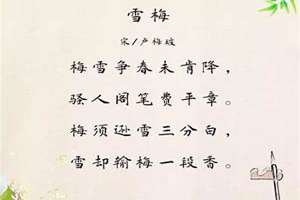 雪梅
宋/卢梅坡
梅雪争春未肯降，
骚人阁笔费平章。
梅须逊雪三分白，
雪却输梅一段香。